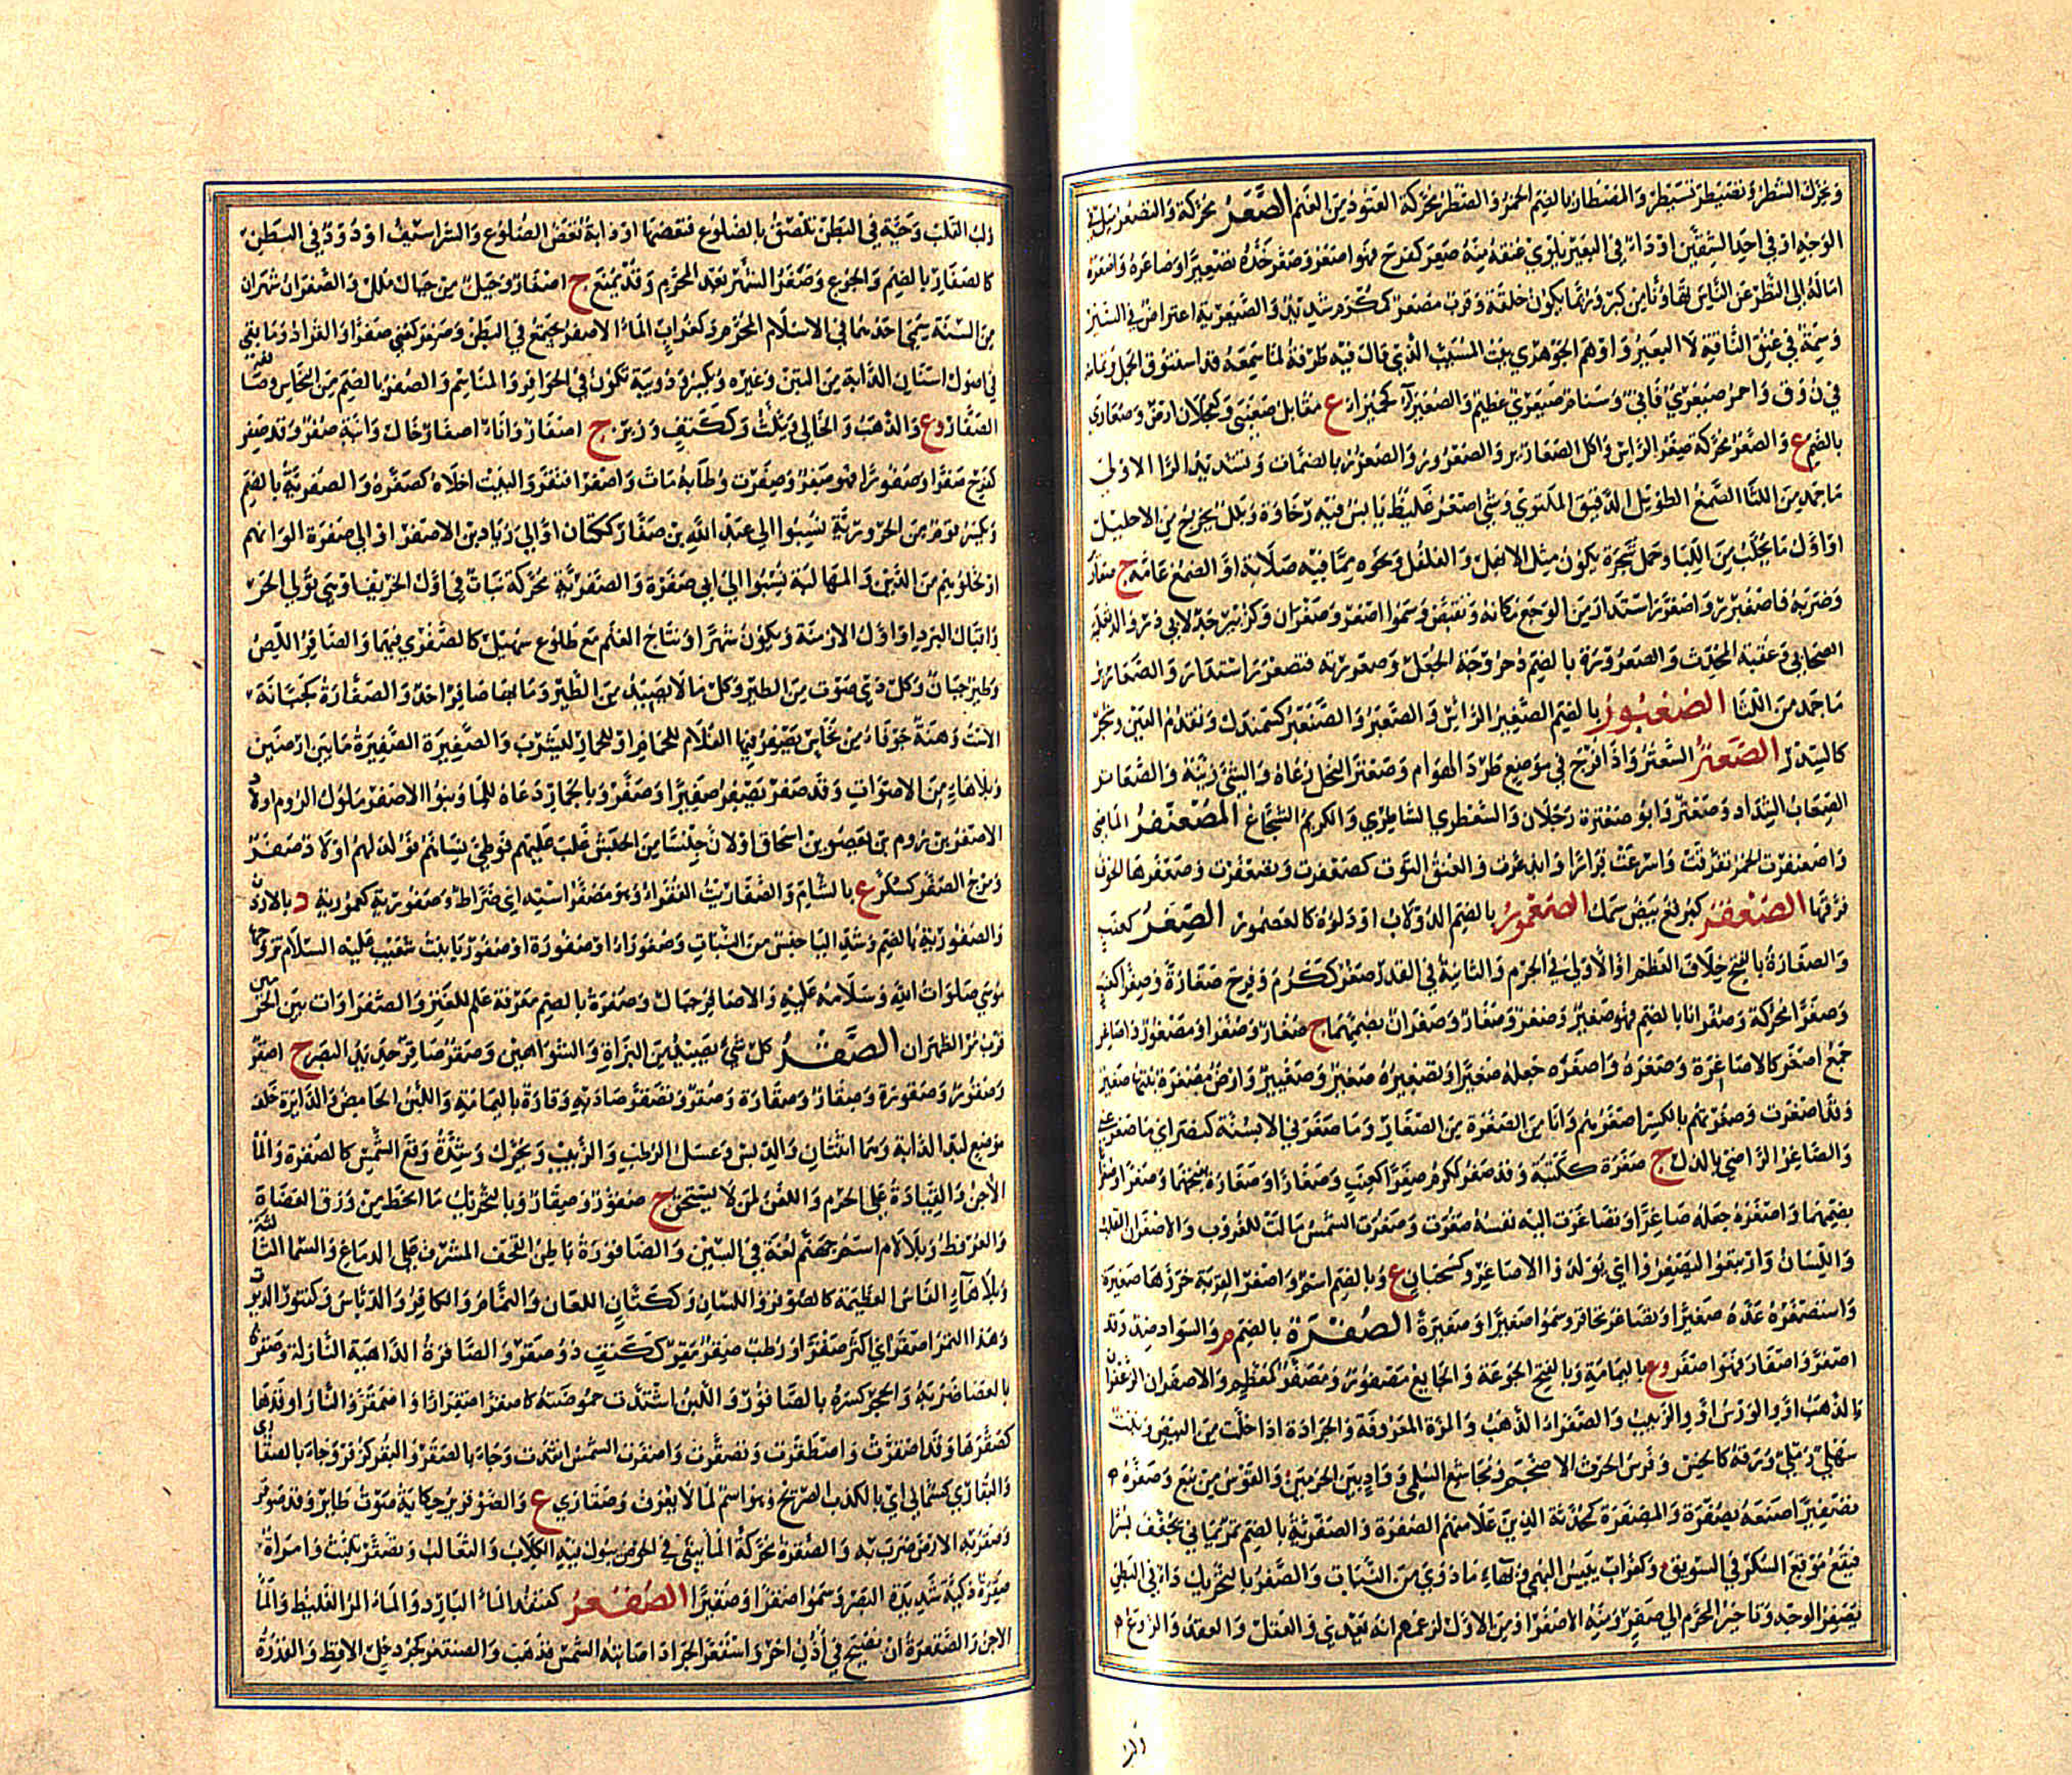 ويحرك الشطر وتصيطر تسيطر والمصطار بالضم الخمر والصطر محركة العتود من الغنم الصعر محركة والتصعر ميل في
الوجه او في احد الشقين او داء في البعير يلوي عنقه منه صعر كفرح فهو اصعر وصعر خده تصعيرا وصاعره واصعره
اماله الى النظر عن الناس تهاونا من كبر وربما يكون خلقة وقرب مصعر كمكرم شديد والصيعرية اعتراض في السير
وسمة في عنق الناقة لا البعير واوهم الجوهري بيت المسيب الذي قال فيه طرفة لما سمعه قد استنوق الجمل
في نوق واحمر صيعري قاني وسنام صيعري عظيم والصعيراء كحميراء ع مقابل صعنبى وكعجلان ارض وصعارى
بالضم ع والصعر محركة صغر الراس واكل الصعارير والصعرور والصعرر بالضمات وتشديد الرا الاولى
ما جمد من اللثا الصمغ الطويل الدقيق الملتوي وشي اصغر غليظ يابس فيه رخاوة وبلل يخرج من الاحليل
او اول ما يحلب من اللبا وحمل شجرة يكون مثل الابهل والفلفل ونحوه مما فيه صلابة او الصمغ عامة ج صعارير
وضربه فاصعنرر واصعرر استدار من الوجع مكانه وتقبض وسموا اصعر وصعران وكزبير جد لابي ذر
الصحابي وعقبة المحدث والصعرورة بالضم دحروجة الجعل وصعررته فتصعرر استدار والصعارير
ما جمد من اللثا الصعبور بالضم الصغير الراس والصعبر والصنعبر كسمندل وتقدم العين شجر
كالسدر الصعتر السعتر واذا فرش في موضع طرد الهوام وصعتر النحل رعاه والشي زينه والصعاتر
الصعاب الشداد وصعتر وابو صعترة رجلان والصعطري الشاطر والكريم الشجاع المصعنفر الماضي
واصعنفرت الحمر تفرقت واسرعت فرارا وابذعرت والعنق التوت كصعفرت وتصعفرت وصعفرها الخوف
فرقها الصعقر كبرقع بيض السمك الصعمور بالضم الدولاب او دلوه كالعصمور الصغر كعنب
والصغارة بالفتح خلاف العظم او الاولى في الجرم والثانية في القدر صغر ككرم وفرح صغارة وصغرا كعنب
وصغرا محركة وصغرانا بالضم فهو صغير وصغر وصغار وصغران بضمهما ج صغار وصغراء ومصغور واصاغر
جمع اصغر كالاصاغرة وصغره واصغره جعله صغيرا وتصغيره صغير وصغيير وارض مصغرة نبتها صغير
وقد اصغرت وصغرتهم بالكسر اصغرهم وانا من الصغرة من الصغار وما صغرني الا بسنة كنصر اي ما صغر عني
والصاغر الراضي بالذل ج صغرة ككتبة وقد صغر ككرم صغرا كعنب وصغارا وصغارة بفتحهما وصغرا
بضمهما واصغره جعله صاغرا وتصاغرت اليه نفسه صغرت وصغرت الشمس مالت للغروب والاصغران القلب
واللسان وارتبعوا ليصغروا اي يولدوا الاصاغر وكسحبان ع وبالضم اسم واصغر القربة خرزها صغيرة
واستصغره عده صغيرا وتصاغر تحاقر وسموا صغيرا وصغيرة الصفرة بالضم م والسواد ضد وقد
اصفر واصفار فهو اصفر وع باليمامة وبالفتح الجوعة والجايع مصفور ومصفر كمعظم والاصفران الزعفران
والذهب او والورس او والزبيب والصفراء الذهب والمرة المعروفة والجرادة اذا خلت من البيض ونبت
سهلي رملي ورقه كالخس وفرس الحرث الاضجم ومجاشع السلمي وواد بين الحرمين والقوس من نبع وصفره
تصفيرا صبغه بصفرة والمصفرة كمحدثة الذين علامتهم الصفرة والصفرية بالضم تمر يماني يجفف بسرا
فيقع موقع السكر في السويق وكغراب يبيس البهمى وبهاء ما ذوي من النبات والصفر بالتحريك داء في البطن
يصفر الوجه وتاخير المحرم الى صفر ومنه لا صفر او من الاول لزعمهم انه يعدي والعقل والعقد والروع
ولب
ولب القلب وحية في البطن تلصق بالضلوع فتعضها او دابة تعض الضلوع والشراسيف او دود في البطن
كالصفار بالضم والجوع وصفر الشهر بعد المحرم وقد يمنع ج اصفار وجبل من جبال ملل والصفران شهران
من السنة سمي احدهما في الاسلام المحرم وكغراب الماء الاصفر يجتمع في البطن وصفر كعني صفرا والقراد وما بقي
في اصول اسنان الدابة من التبن وغيره ويكسر ودويبة تكون في الحوافر والمناسم والصفر بالضم من النحاس وصانعه
الصفار وع والذهب والخالي ويثلث وككتف وزبر ج اصفار واناء اصفار خال وانية صفر وقد صفر
كفرح صفرا وصفورا فهو صفر وصفرت وطابه مات واصفر افتقر والبيت اخلاه كصفره والصفرية بالضم
ويكسر قوم من الحرورية نسبوا الى عبد الله بن صفار ككتان او الى زياد بن الاصفر او الى صفرة الوانهم
او لخلوهم من الدين والمهالبة نسبوا الى ابي صفرة والصفرية محركة نبات في اول الخريف او هي تولي الحر
واقبال البرد او اول الازمنة ويكون شهرا ونتاج الغنم مع طلوع سهيل كالصفري فيهما والصافر اللص
وطير جبان وكل ذي صوت من الطير وكل ما لا يصيد من الطير وما بها صافر احد والصفارة كجبانة
الاست وهنة جوفاء من نحاس يصفر فيها الغلام للحمام او للحمار ليشرب والصفيرة الضفيرة ما بين ارضين
وبلا هاء من الاصوات وقد صفر يصفر صفيرا وصفر وبالحمار دعاه للماء وبنو الاصفر ملوك الروم اولاد
الاصفر بن روم بن يعصو بن اسحاق او لان جيشا من الحبش غلب عليهم فوطي نساءهم فولد لهم اولاد صفر
ومرج الصفر كسكر ع بالشام والصفاريت الفقراء وهو مصفر استه اي ضراط وصفورية كعمورية د بالاردن
والصفورية بالضم وشد الياء جنس من النبات وصفوراء او صفورة او صفوريا بنت شعيب عليه السلام تزوجها
موسى صلوات الله وسلامه عليه والاصافر جبال وصفرة بالضم معرفة علم للعنز والصفراوات بين الحرمين
قرب مر الظهران الصقر كل شي يصيد من البزاة والشواهين وصقر صاقر حديد البصر ج اصقر
وصقور وصقورة وصقار وصقارة وصقر وتصقر صاد به وقارة باليمامة واللبن الحامض والدايرة خلف
موضع لبد الدابة وهما اثنتان والدبس وعسل الرطب والزبيب ويحرك وشدة وقع الشمس كالصقرة والماء
الاجن والقيادة على الحرم واللعن لمن لا يستحق ج صقور وصقار وبالتحريك ما انحط من ورق العضاه
والعرفط وبلا لام اسم جهنم لغة في السين والصاقورة باطن القحف المشرف على الدماغ والسماء الثالثة
وبلا هاء الفاس العظيمة كالصوقر واللسان وككتان اللعان والنمام والكافر والدباس وكتنور الديوث
وهذا التمر اصقر اي اكثر صقرا ورطب صقر مقر ككتف ذو صقر والصاقرة الداهية النازلة وصقره
بالعصا ضربه والحجر كسره بالصاقور واللبن اشتدت حموضته كاصقر اصقرارا واصمقر والنار اوقدها
كصقرها وقد اصقرت واصطقرت وتصقرت واصقرت الشمس اتقدت وجاء بالصقر والبقر كزفر وجاء بالصقارى
والبقارى كسمانى اي بالكذب الصريح وهو اسم لما لا يعرف وصقارى ع والصوقرير حكاية صوت طاير وقد صوقر
وصقر به الارض ضرب به والصقرة محركة الماء يبقى في الحوض يبول فيه الكلاب والثعالب وتصقر تلبث وامراة
صقرة ذكية شديدة البصر وسموا صقرا وصقيرا الصقعر كقنفذ الماء البارد والماء المر الغليظ والماء
الاجن والصقعرة ان تصيح في اذن اخر واصقعر الجراد اصابته الشمس فذهب والصنقعر كجردحل الاقط والفدرة